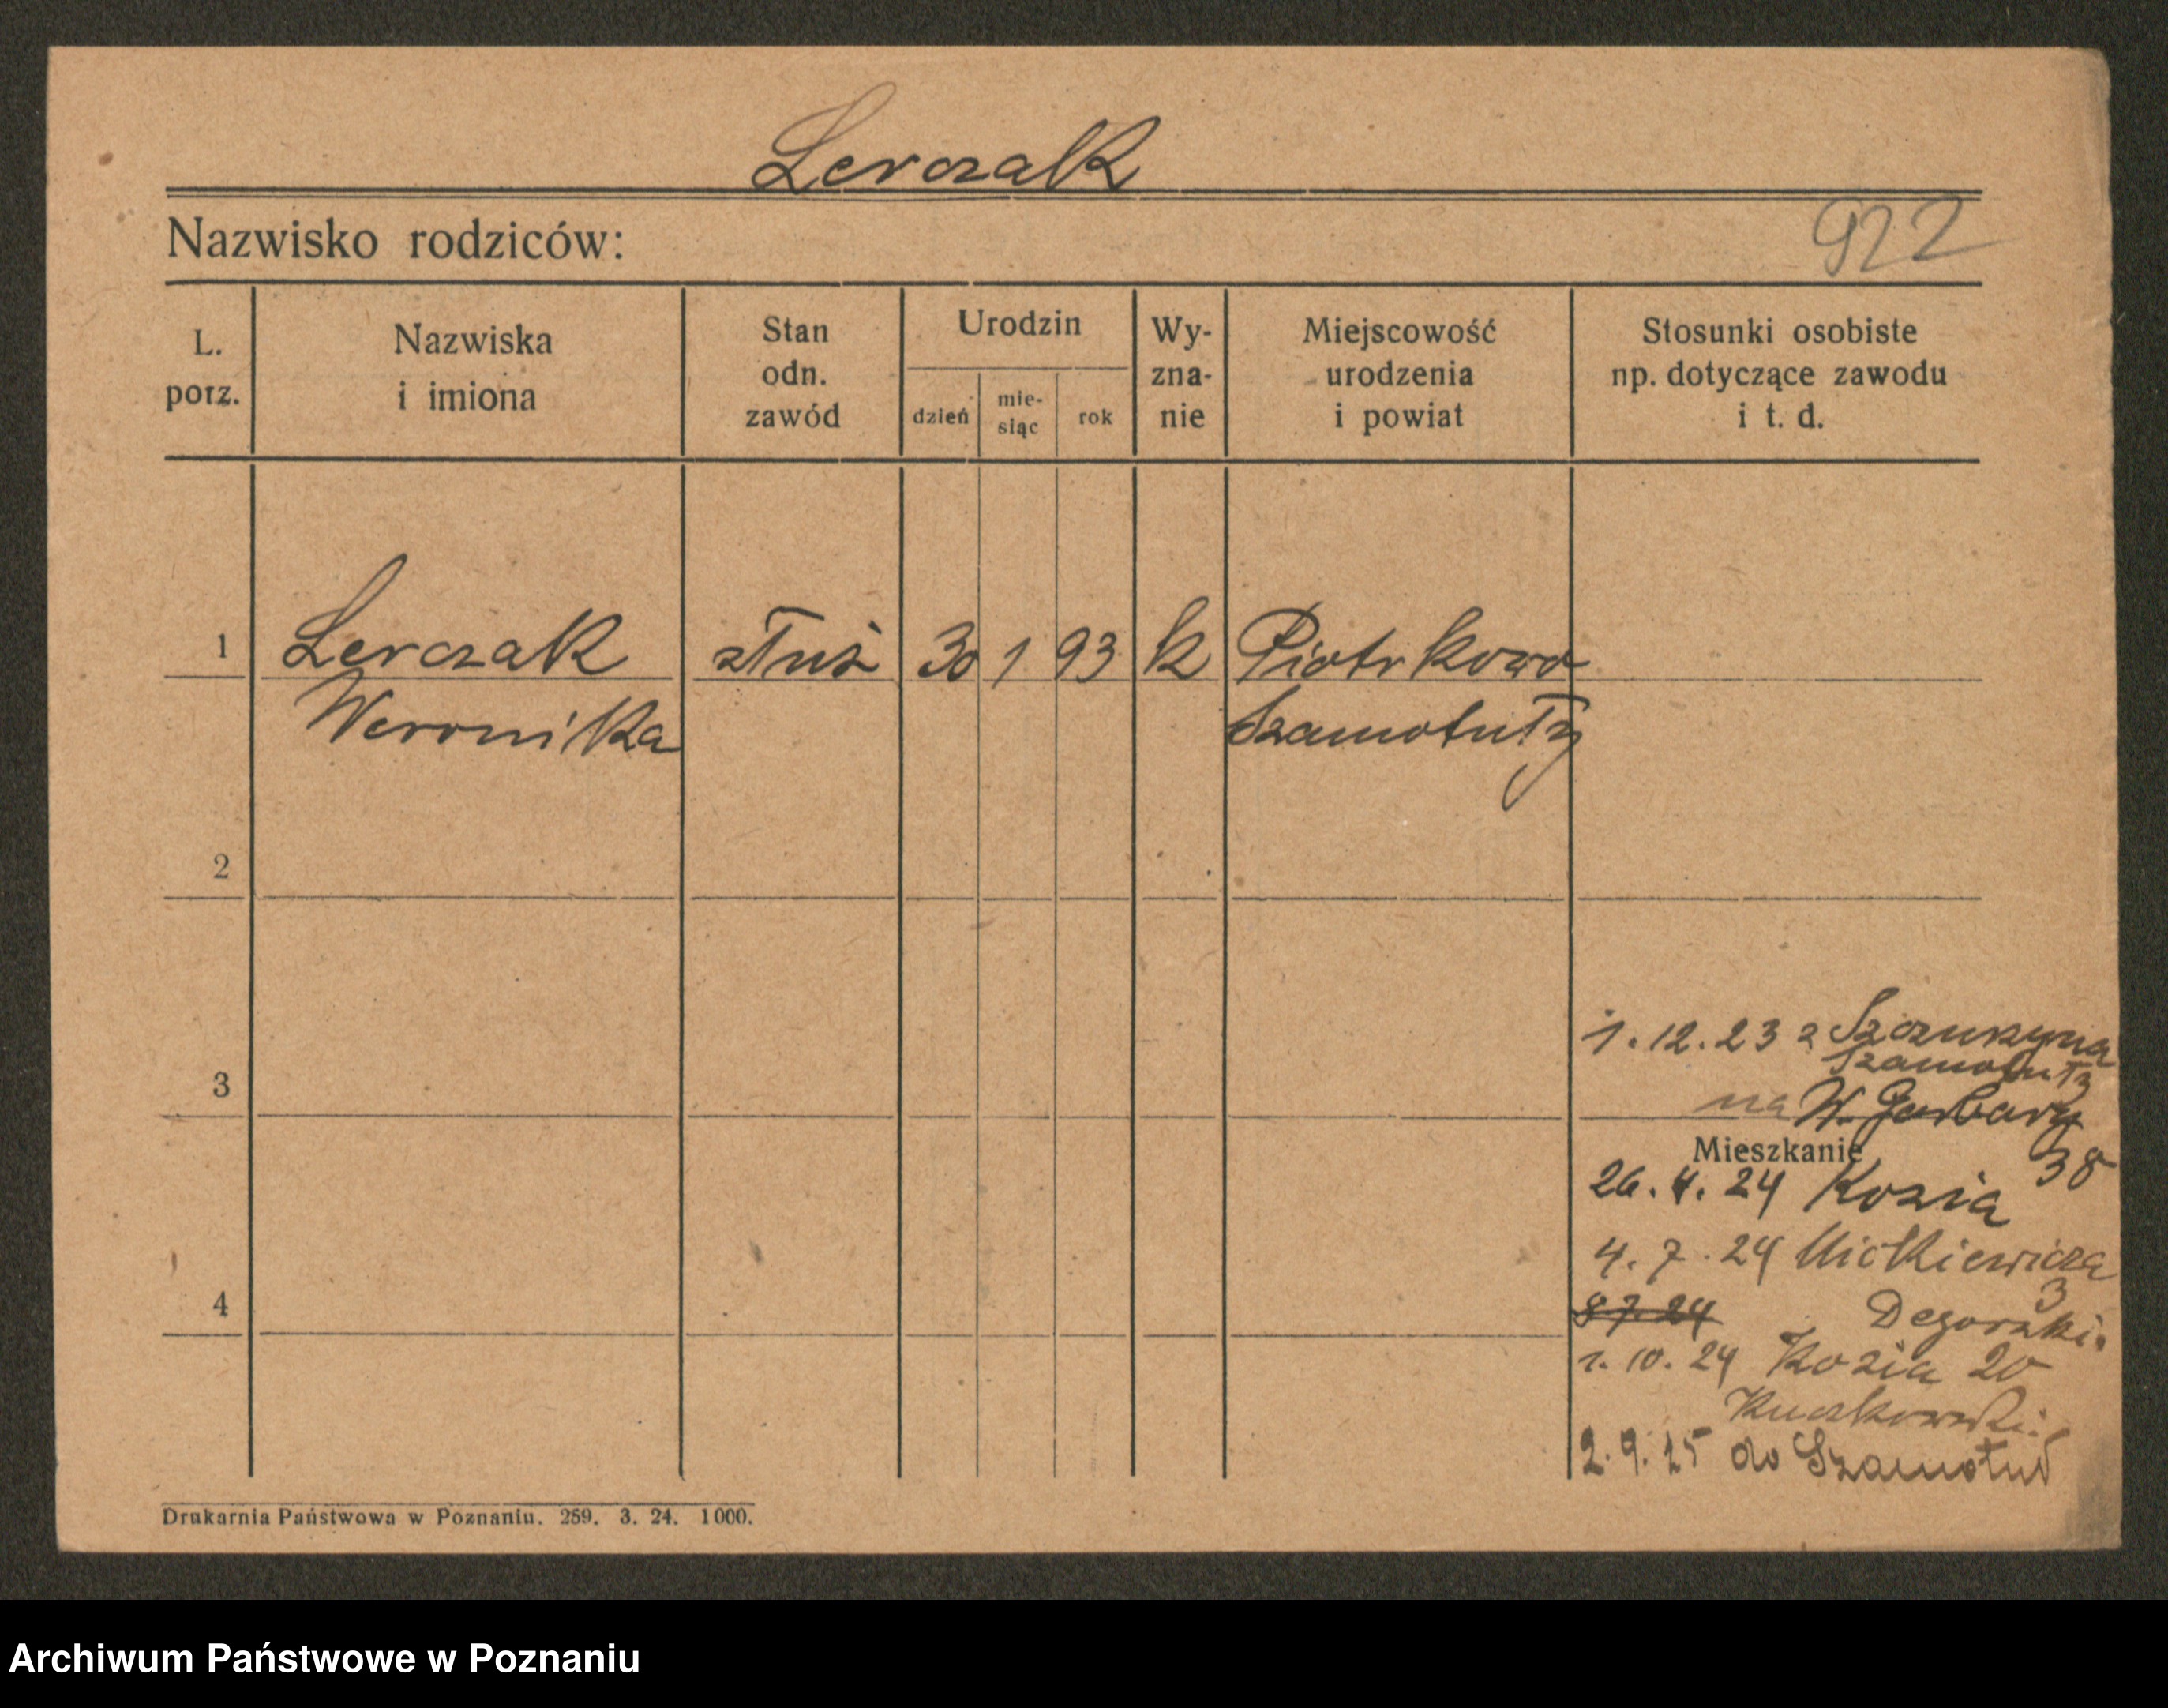 Lerczak
Nazwisko rodziców:
922
L. porz.
Nazwiska i imiona
Stan odn. zawód
Urodzin
dzień
mie-siąc
rok
Wy-zna-nie
Miejscowość urodzenia i powiat
Stosunki osobiste np. dotyczące zawodu i t. d.
1 Lerczak służ 30 1 93 k Piotrkowo
Weronika Szamotuły
2
1.12.23 z
Szamotuły
3
na W. Garbary
Mieszkanie 38
26.4.24 Kozia
4.7.24 Mickiewicza
3
4
8 7.24 Degorski.
1.10.24 Kozia 20
2.9.25 do Szamotuł
Drukarnia Państwowa w Poznaniu. 259. 3. 24. 1000.
Archiwum Państwowe w Poznaniu